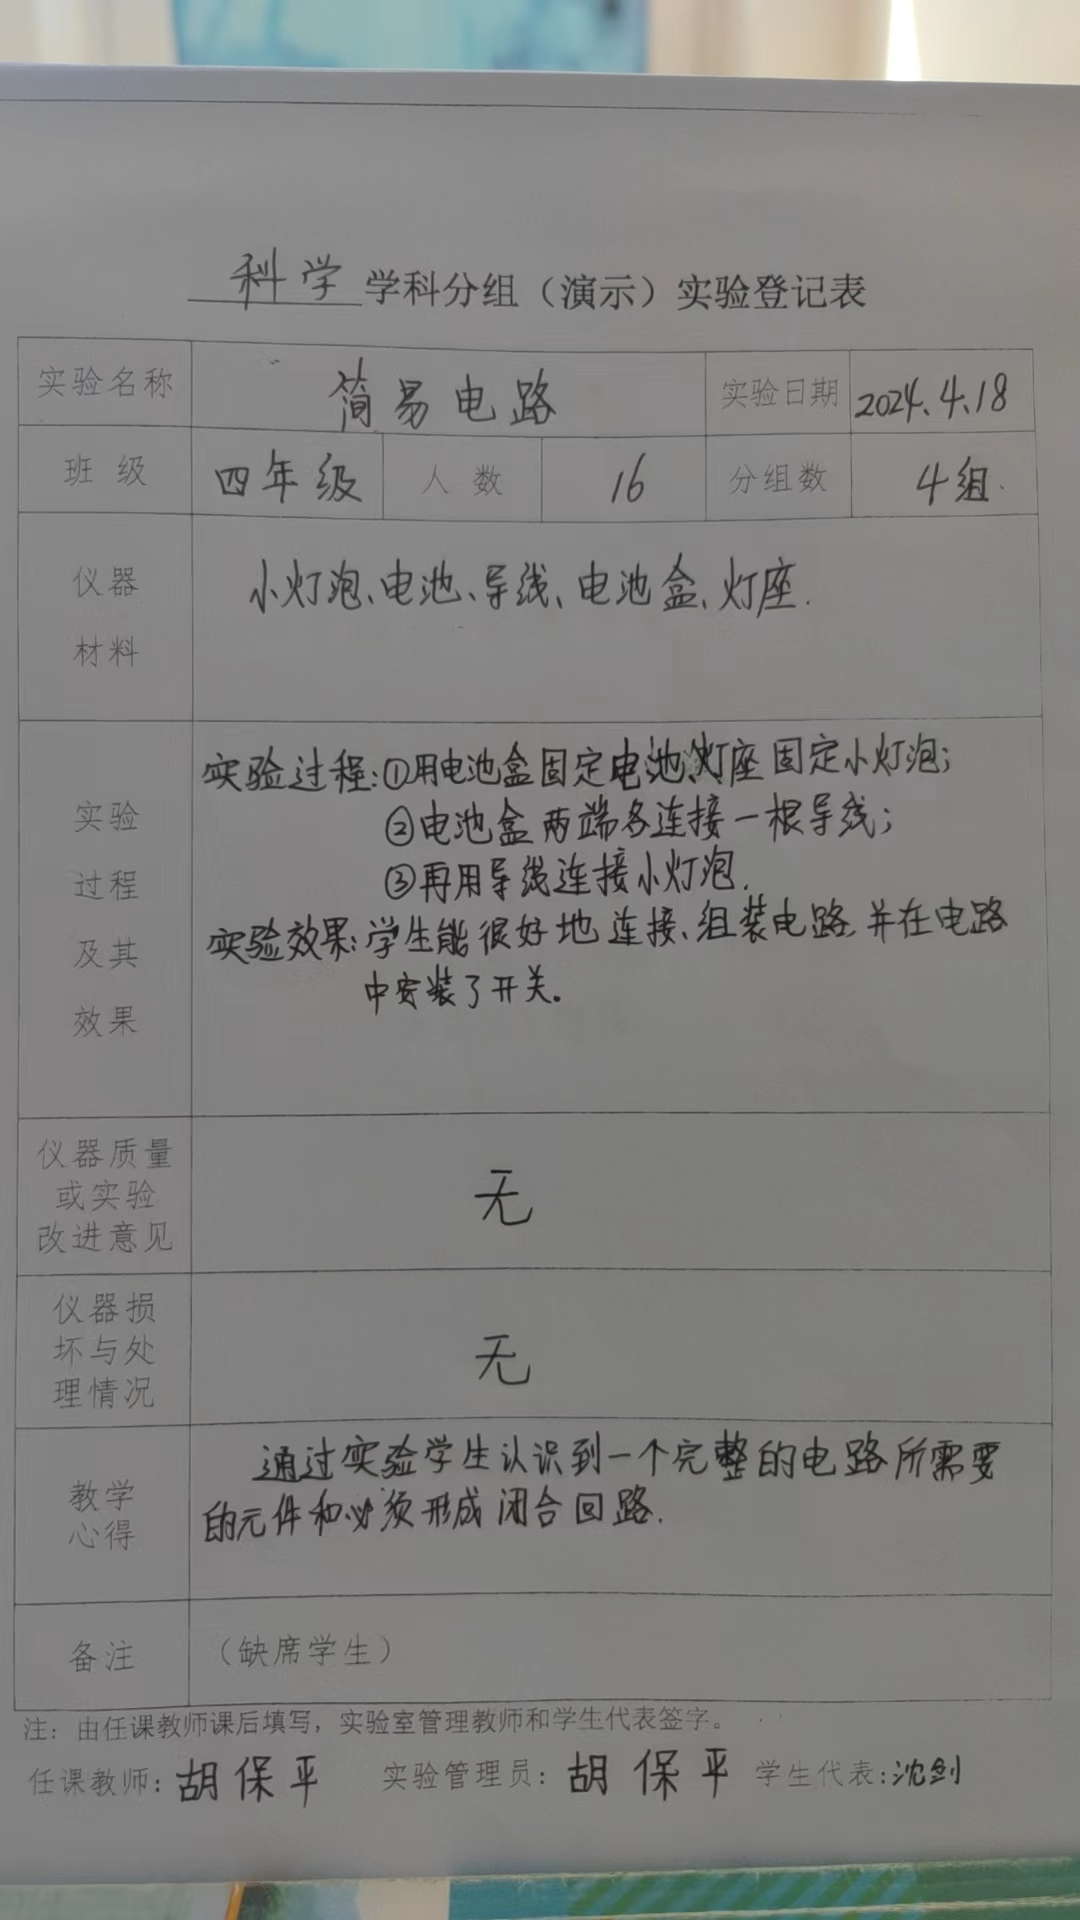 科学 学科分组（演示）实验登记表
实验名称 简易电路 实验日期 2024.4.18
班 级 四年级 人 数 16 分组数 4组.
仪器
材料
小灯泡、电池、导线、电池盒、灯座.
实验
过程
及其
效果
实验过程:①用电池盒固定电池、灯座固定小灯泡;
②电池盒两端各连接一根导线;
③再用导线连接小灯泡.
实验效果:学生能很好地连接、组装电路,并在电路
中安装了开关。
仪器质量
或实验
改进意见
无
仪器损
坏与处
理情况
无
教学
心得
通过实验学生认识到一个完整的电路所需要
的元件和必须形成闭合回路.
备注 （缺席学生）
注：由任课教师课后填写，实验室管理教师和学生代表签字。
任课教师：胡保平 实验管理员：胡保平 学生代表：沈剑